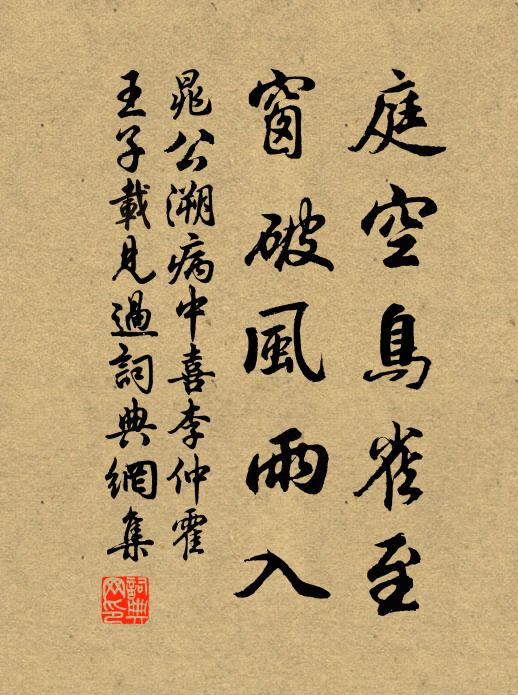 庭空鳥雀至
窗破風雨入
晁公溯病中喜李仲霍
王子載見過詞典網集
詞典
网印